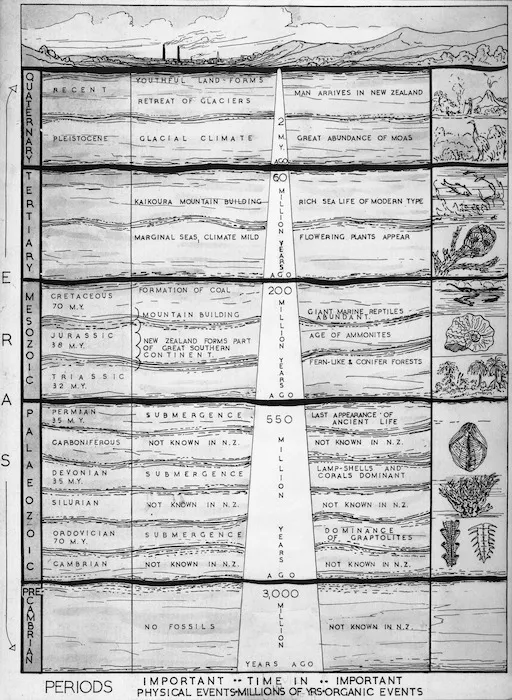 ERAS
QUATERNARY
RECENT
YOUTHFUL LAND-FORMS
RETREAT OF GLACIERS
MAN ARRIVES IN NEW ZEALAND
PLEISTOCENE
GLACIAL CLIMATE
2 M.Y. AGO
GREAT ABUNDANCE OF MOAS
TERTIARY
KAIKOURA MOUNTAIN BUILDING
MARGINAL SEAS, CLIMATE MILD
60 MILLION YEARS AGO
RICH SEA LIFE OF MODERN TYPE
FLOWERING PLANTS APPEAR
MESOZOIC
CRETACEOUS
70 M.Y.
FORMATION OF COAL
MOUNTAIN BUILDING
200 MILLION YEARS AGO
GIANT MARINE REPTILES
ABUNDANT.
JURASSIC
38 M.Y.
NEW ZEALAND FORMS PART
OF GREAT SOUTHERN
CONTINENT.
AGE OF AMMONITES
TRIASSIC
32 M.Y.
FERN-LIKE & CONIFER FORESTS
PALAEOZOIC
PERMIAN
35 M.Y.
SUBMERGENCE
550 MILLION YEARS AGO
LAST APPEARANCE OF
ANCIENT LIFE
CARBONIFEROUS
NOT KNOWN IN N.Z.
NOT KNOWN IN N.Z.
DEVONIAN
35 M.Y.
SUBMERGENCE
LAMP-SHELLS AND
CORALS DOMINANT
SILURIAN
NOT KNOWN IN N.Z.
NOT KNOWN IN N.Z.
ORDOVICIAN
70 M.Y.
SUBMERGENCE
DOMINANCE
OF GRAPTOLITES
CAMBRIAN
NOT KNOWN IN N.Z.
NOT KNOWN IN N.Z.
PRE CAMBRIAN
NO FOSSILS
3,000 MILLION
YEARS AGO
NOT KNOWN IN N.Z.
PERIODS
IMPORTANT
PHYSICAL EVENTS
TIME IN
MILLIONS OF YRS
IMPORTANT
ORGANIC EVENTS